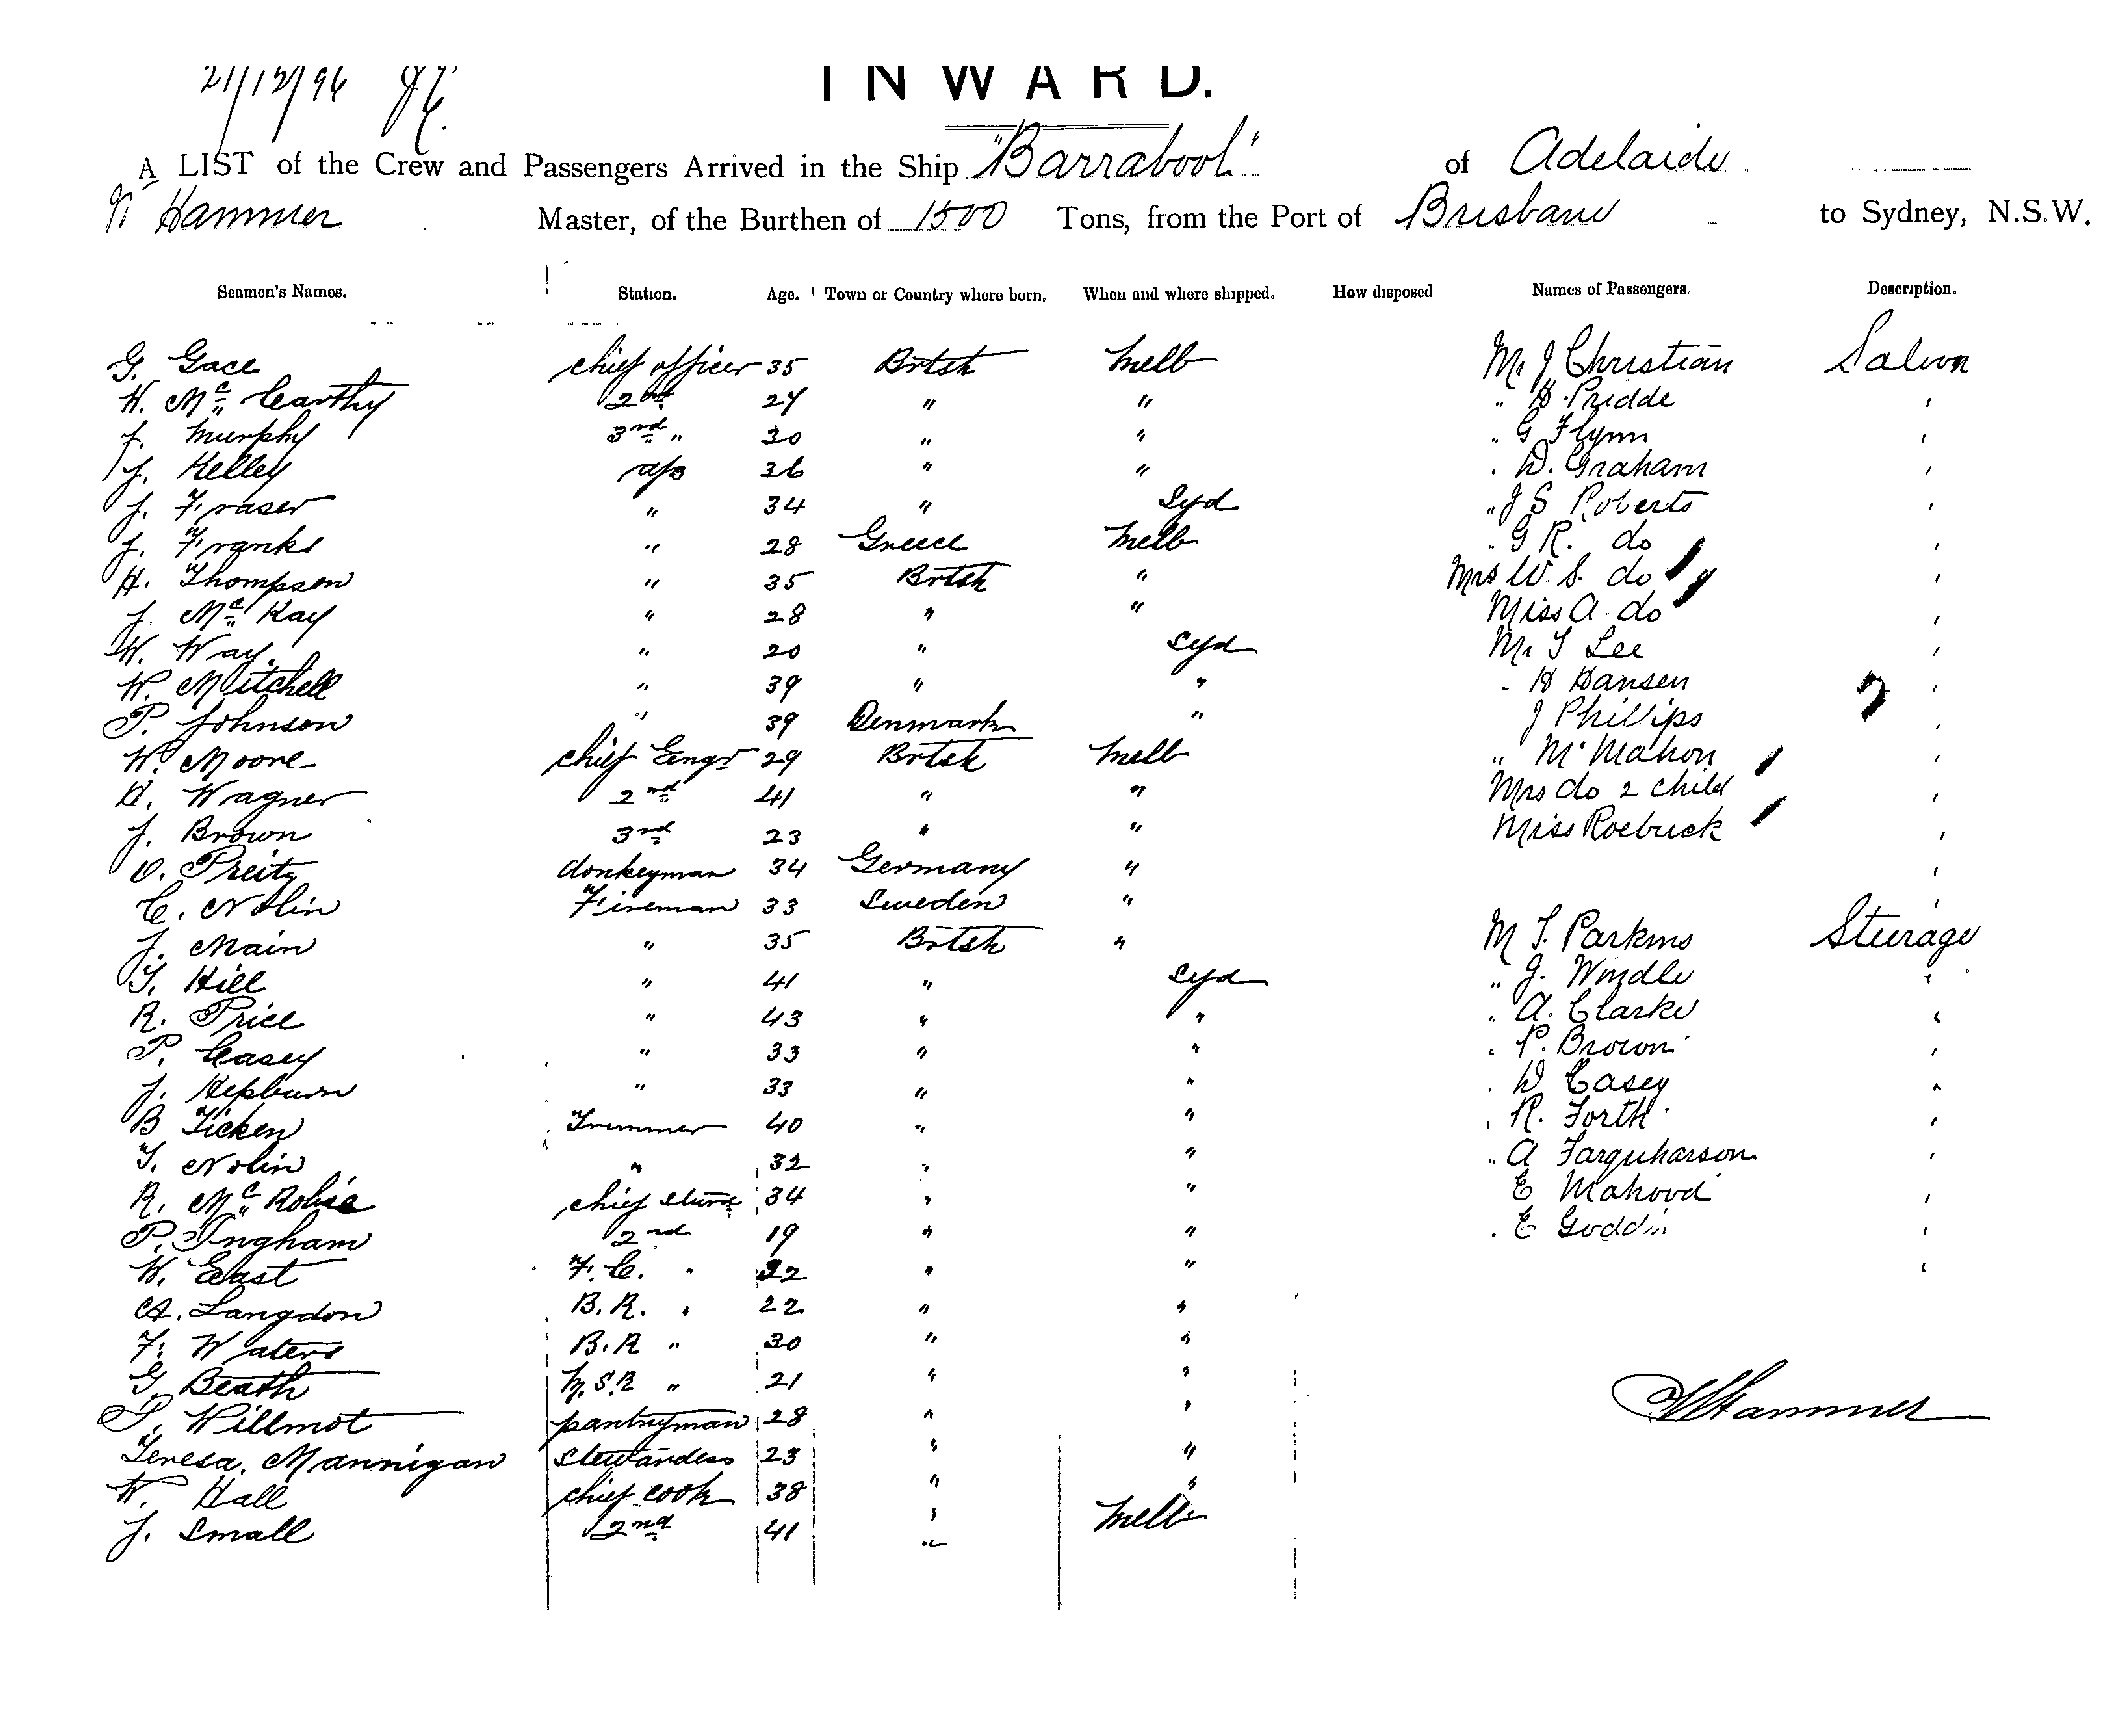 21/12/96
INWARD.
A LIST of the Crew and Passengers Arrived in the Ship "Barrabool" of Adelaide
Hammer Master, of the Burthen of 1500 Tons, from the Port of Brisbane to Sydney, N.S.W.
Seamen's Names. Station. Age. Town or Country where born. When and where shipped. How disposed Names of Passengers. Description.
G. Gace chief officer 35 Brtsh Melb Mr J Christian Saloon
W. Mc Carthy 2nd 27 " " " H. Pridde '
J. Murphy 3rd " 30 " " " G Flynn '
J. Kelley a/s 36 " " . D. Graham '
J. Fraser " 34 " Syd " J S Roberts '
J. Franks " 28 Greece Melb " G R. do '
H. Thompson " 35 Brtsh " Mrs W. S. do '
J. Mc Kay " 28 " " Miss A do '
W. Way. " 20 " Syd Mr T Lee '
W. Mitchell " 39 " " " H Hansen '
P. Johnson " 39 Denmark " J Phillips '
W. Moore chief Engr 29 Brtsh Melb " McMahon '
H. Wagner 2nd 41 " " Mrs do 2 child '
J. Brown 3rd 23 " " Miss Roebuck '
O. Preitz donkeyman 34 Germany " '
C. Nolin Fireman 33 Sweden " '
J. Main " 35 Brtsh " M T. Parkins Steerage
T. Hill " 41 " Syd " J. Windle '
R. Price " 43 " " . A. Clarke '
P. Casey " 33 " " . P. Brown '
J. Hepburn " 33 " " . D Casey '
B Ticken Trimmer 40 " " . R. Forth '
T. Nolin " 32 " " " A Farquharson '
R. Mc Robie chief Stwrd 34 " " E Mahood '
P. Ingham 2nd 19 " " . E Goddin '
W. East F. C. " 32 " " '
A. Langdon B. R. " 22 " "
F. Waters B. R " 30 " "
G. Beath M. S. R " 21 " "
P. Willmot pantryman 28 " " Hammer
Teresa. Mannigan Stewardess 23 " "
W. Hall chief cook 38 " "
J. Small 2nd 41 " Melb